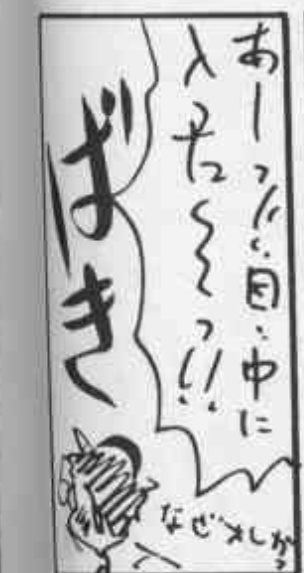 あーッ!!目ン中に
入った〜〜っ!!
ばき
なぜオレが?